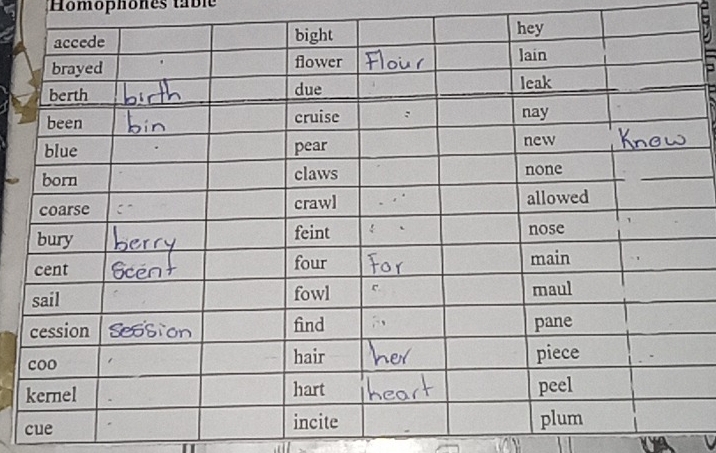 Homophones table
accede bight hey
brayed flower Flour lain
berth birth due leak
been bin cruise nay
blue pear new Know
born claws none
coarse crawl allowed
bury berry feint nose
cent Scent four For main
sail fowl maul
cession session find pane
coo hair her piece
kernel hart heart peel
cue incite plum